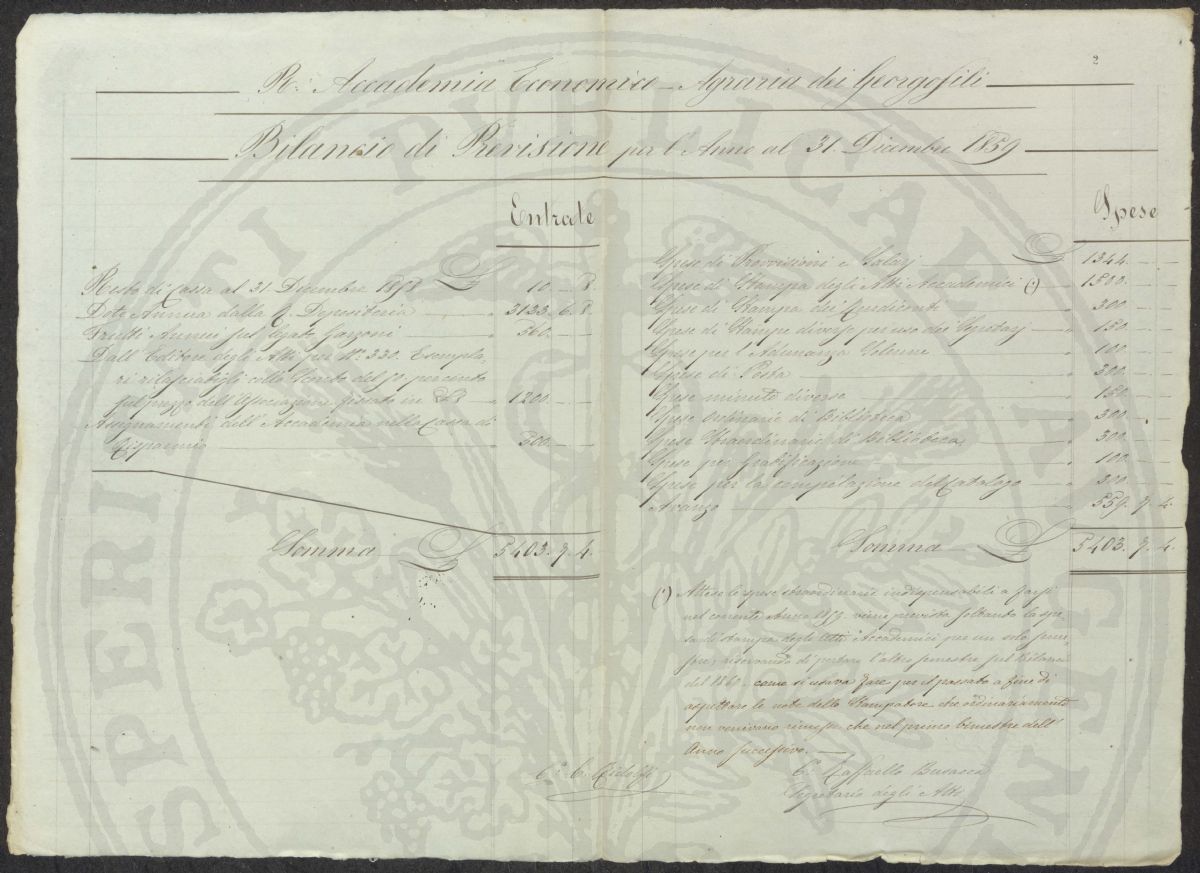 2
R. Accademia Economico-Agraria dei Georgofili
Bilancio di Previsione per l'Anno al 31 Dicembre 1859
Entrate
Resto di Cassa al 31. Dicembre 1858 £ 10. — 8.
Dote Annua dalla R. Depositeria " 3133. 6. 8.
Frutti Annui sul Legato Garzoni " 560. — —
Dall'Editore degli Atti per N.° 330. Esempla,
ri rilasciabigli collo Sconto del 50 per cento
sul prezzo dell'Associazione in £ 8 " 1200. — —
Assegnamenti dell'Accademia nella Cassa di
Risparmio " 500. — —
Somma £ 5403. 7. 4.
Spese
Spese di Provvisioni e Salarj £ 1344. — —
Spese di Stampa degli Atti Accademici (*) " 1500. — —
Spese di Stampa dei Rendiconti " 300. — —
Spese di Stampe diverse per uso dei Segretarj " 150. — —
Spese per l'Adunanza Solenne " 100. — —
Spese di Posta " 300. — —
Spese minute diverse " 150. — —
Spese Ordinarie di Biblioteca " 300. — —
Spese Straordinarie di Biblioteca " 300. — —
Spese per Gratificazione " 100. — —
Spese per la compilazione del Catalogo " 300. — —
Avanzo " 559. 7. 4.
Somma £ 5403. 7. 4.
(*) Attese le spese straordinarie indispensabili a farsi
nel corrente Anno 1859. viene prevista soltanto la spe
sa di stampa degli Atti Accademici per un solo seme,
stre, riservando di portare l'altro semestre sul Bilancio
del 1860. come si usava fare per il passato a fine di
aspettare le note dello Stampatore che ordinariamente
non venivano rimesse che nel primo bimestre dell'
Anno successivo. —
C. Ridolfi
C. Raffaello Busacca
Segretario degli Atti
SPERITATI PUBLICAE AUGENDAE